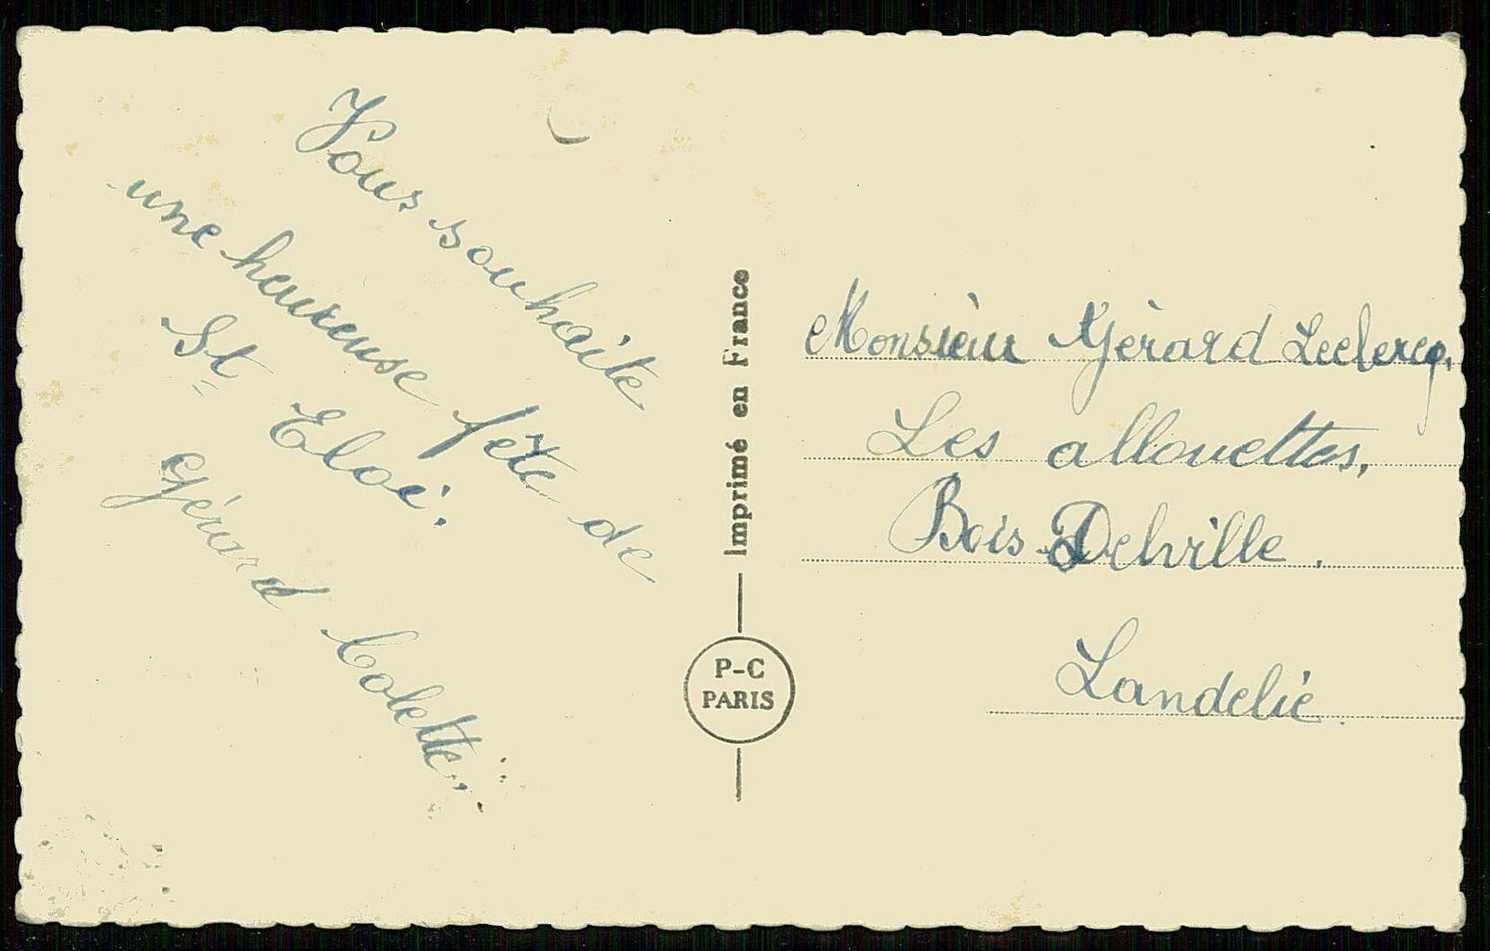 Vous souhaite
une heureuse fête de
St Eloi.
Gérard Colette.
Imprimé en France
P-C
PARIS
Monsieur Gérard Leclercq.
Les allouettes,
Bois Delville.
Landelie.